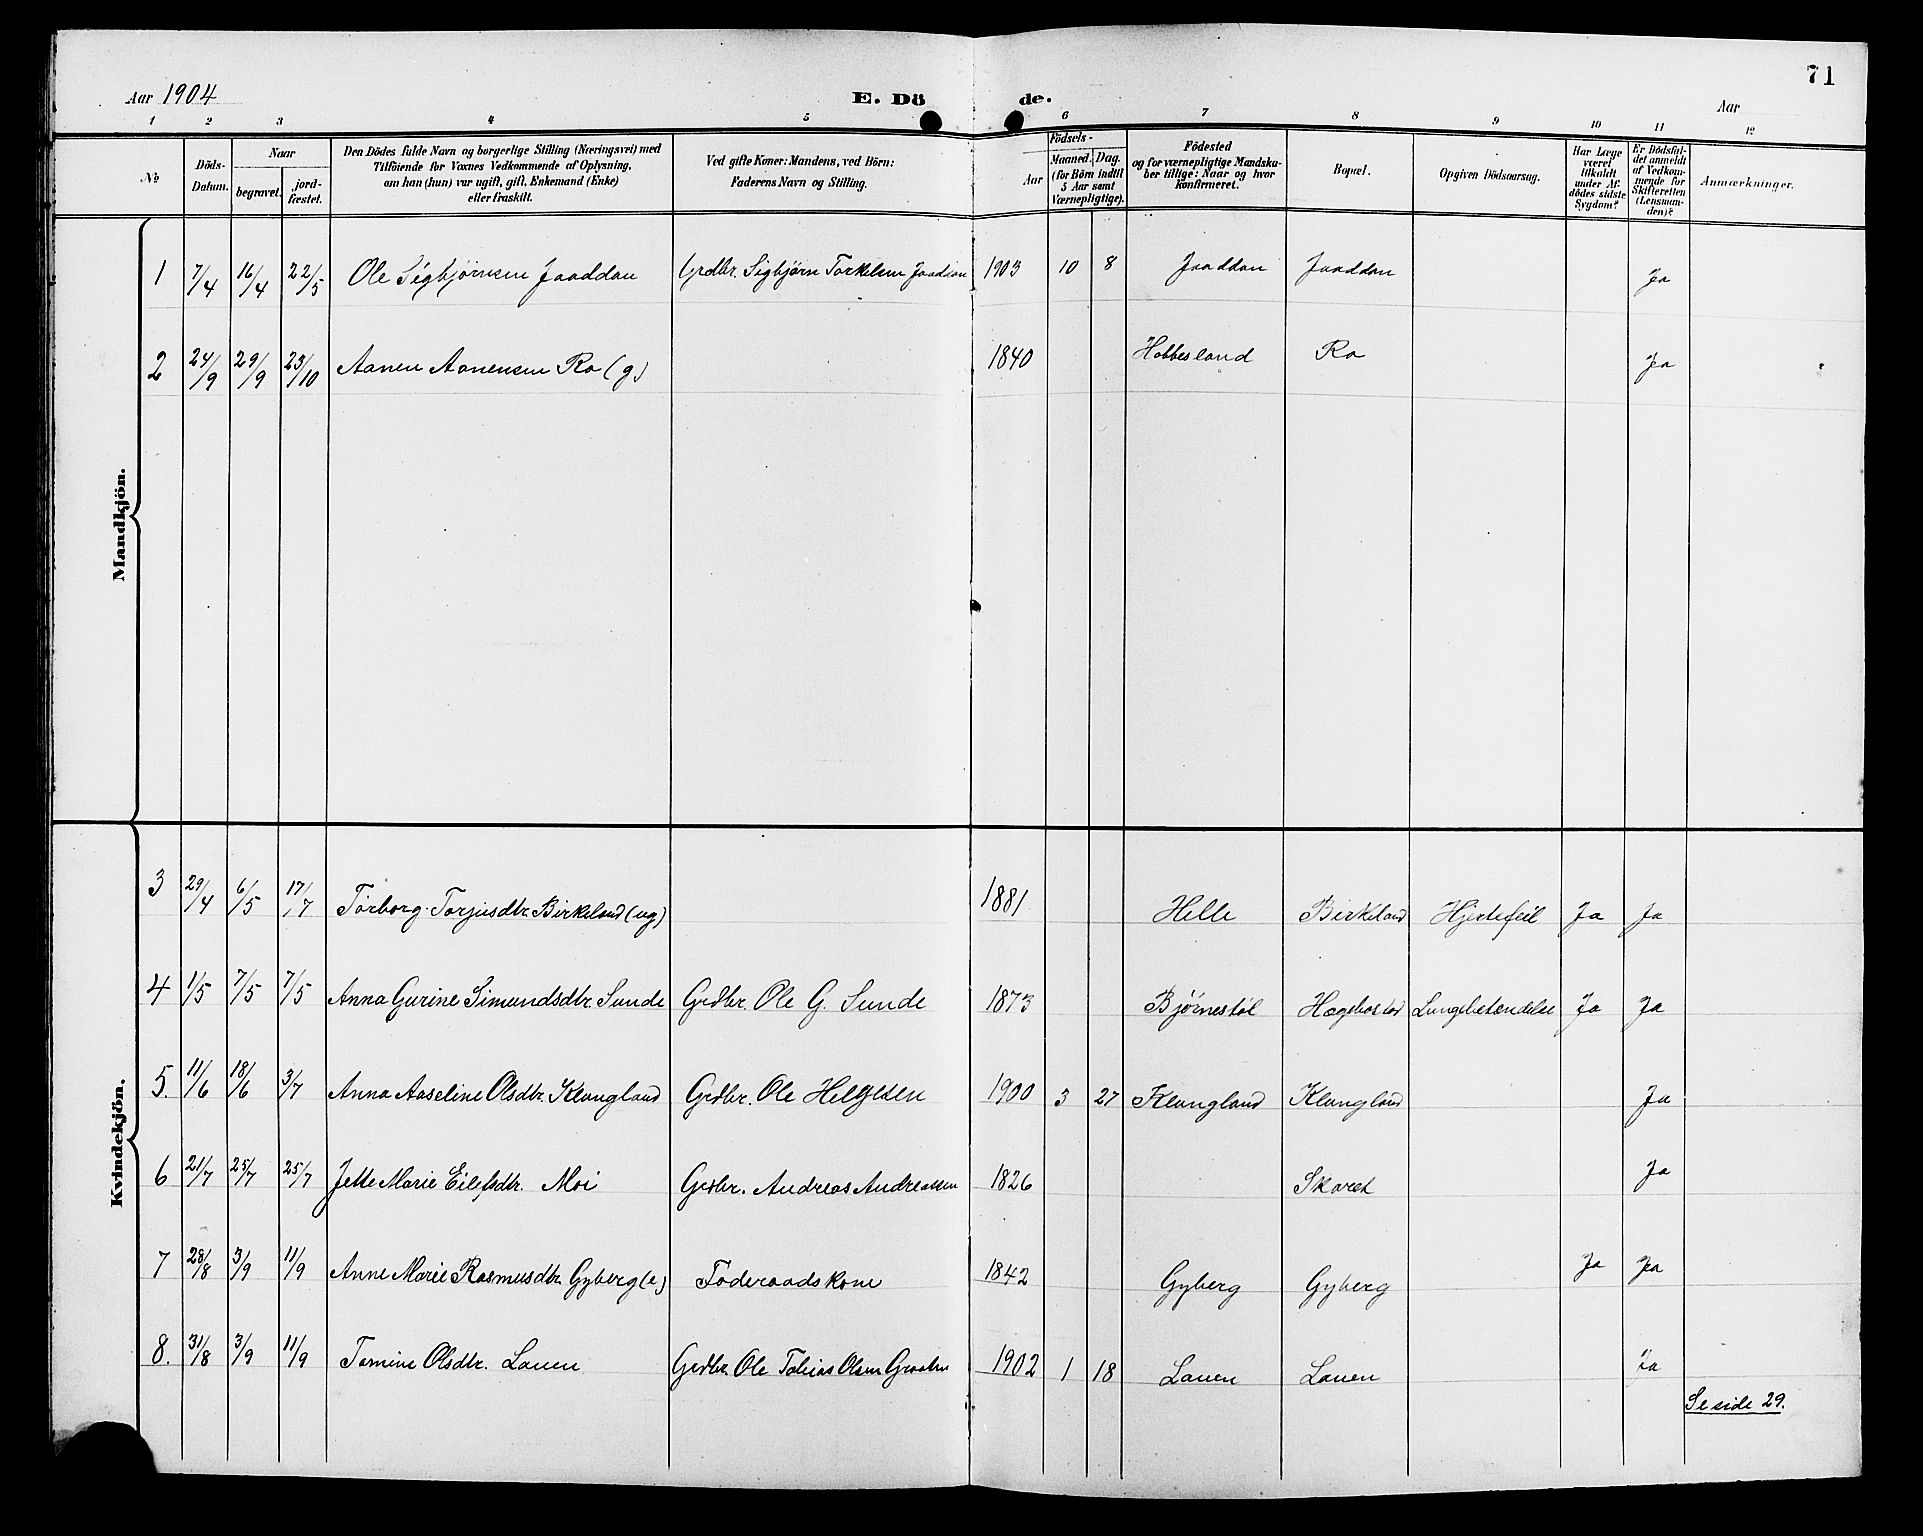 71
Aar 1904 E. Dö de. Aar
1 2 3 4 5 6 7 8 9 10 11 12
№
Döds-
Datum.
Naar
begravet.
jord-
fæstet.
Den Dödes fulde Navn og borgerlige Stilling (Næringsvei) med
Tilföiende for Voxnes Vedkommende af Oplysning,
om han (hun) var ugift, gift, Enkemand (Enke)
eller fraskilt.
Ved gifte Koner: Mandens, ved Börn:
Faderens Navn og Stilling.
Födsels-
Aar
Maaned. Dag.
(for Börn indtil
5 Aar samt
Værnepligtige).
Födested
og for værnepligtige Mandska-
ber tillige: Naar og hvor
konfirmeret.
Bopæl.
Opgiven Dödsaarsag.
Har Læge
været
tilkaldt
under Af-
dödes sidste
Sygdom?
Er Dödsfal-
det anmeldt
af Vedkom-
mende for
Skifteretten
(Lensman-
den)?
Anmærkninger.
Mandkjön.
1 7/4 16/4 22/5 Ole Sigbjørnsen Jaaddan Grdbr. Sigbjørn Torkelsen 1903 10 8 Jaaddan Jaaddan Ja
2 24/9 29/9 23/10 Aanen Aanensen Ro (g) 1840 Hobbesland Ro Ja
Kvindekjön.
3 29/4 6/5 17/7 Torborg Torjusdtr. Birkeland (ug) 1881 Helle Birkeland Hjertefeil Ja Ja
4 1/5 7/5 7/5 Anna Gurine Simundsdtr. Sunde Grdbr. Ole G. Sunde 1873 Bjørnestøl Hægebostad Lungebetændelse Ja Ja
5. 11/6 18/6 3/7 Anna Aaseline Olsdtr. Klungland Grdbr. Ole Helgesen 1900 3 27 Klungland Klungland Ja
6 21/7 25/7 25/7 Jette Marie Eilefsdtr. Moi Grdbr. Andreas Andreassen 1826 Skaret Ja
7 28/8 3/9 11/9 Anne Marie Rasmusdtr. Gyberg (e) Føderaadskone 1842 Gyberg Gyberg Ja Ja
8. 31/8 3/9 11/9 Tomine Olsdtr. Lauen Grdbr. Ole Tobias Olsen 1902 1 18 Lauen Lauen Ja
Se side 29.